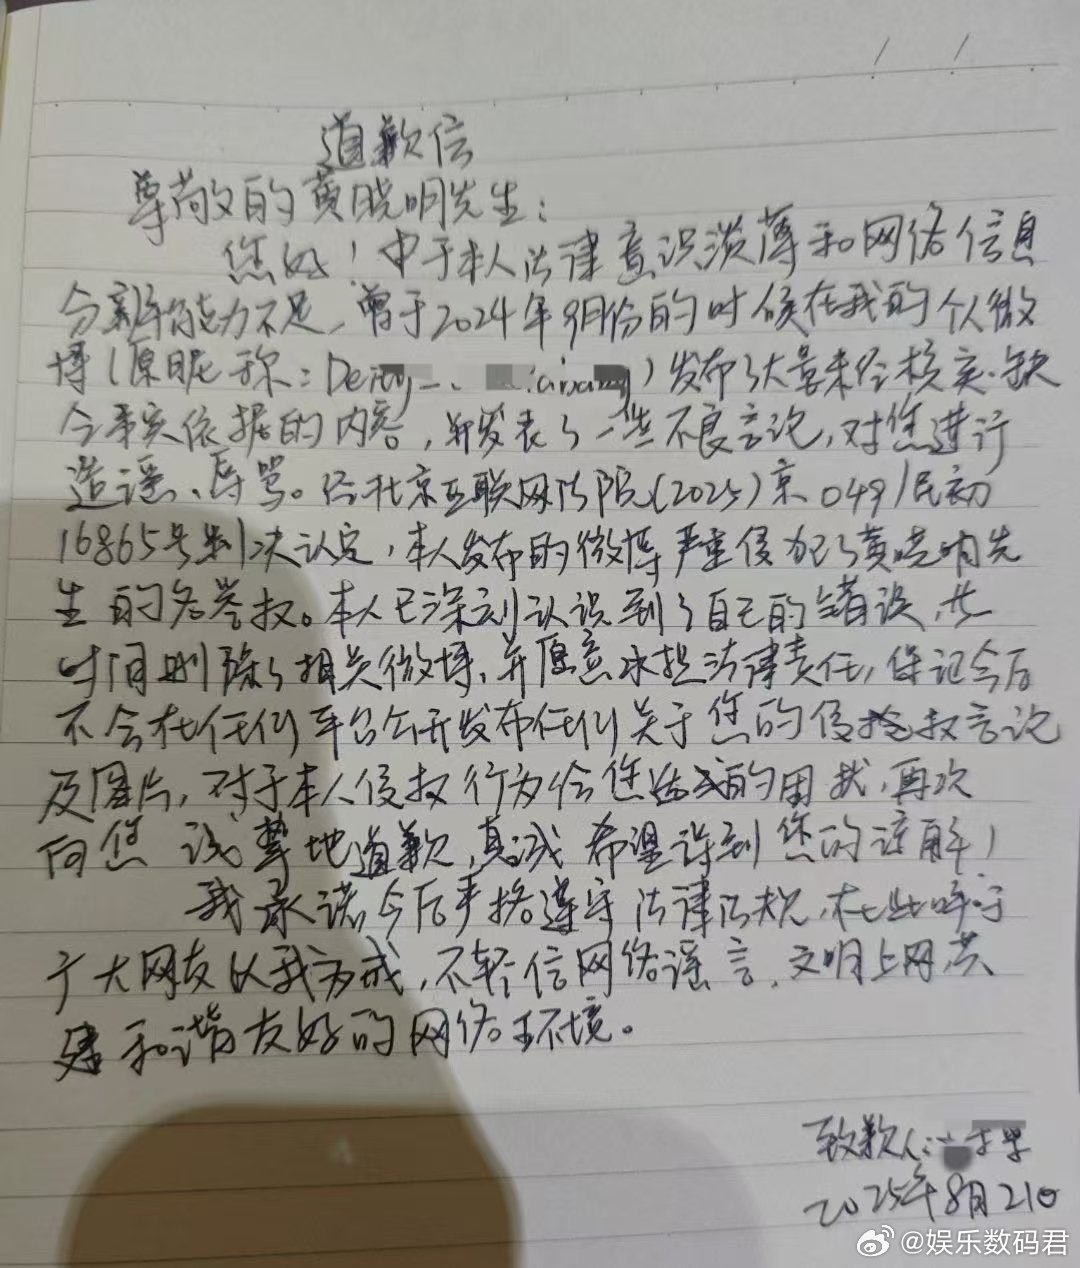 道歉信
尊敬的黄晓明先生：
您好！由于本人法律意识淡薄和网络信息
分辨能力不足，曾于2024年9月份的时候在我的个人微
博（原昵称：Deity_ ）发布了大量未经核实、缺
令事实依据的内容，并发表了一些不良言论，对您进行
造谣、辱骂。经北京互联网法院（2025）京0491民初
16865号判决认定，本人发布的微博严重侵犯了黄晓明先
生的名誉权。本人已深刻认识到了自己的错误，此
时间删除了相关微博，并愿意承担法律责任，保证今后
不会在任何平台公开发布任何关于您的侵权言论
及图片，对于本人侵权行为给您造成的困扰，再次
向您诚挚地道歉，真诚希望得到您的谅解！
我承诺今后严格遵守法律法规，在此呼吁
广大网友以我为戒，不轻信网络谣言，文明上网共
建和谐友好的网络环境。
致歉人：
2025年8月21日
@娱乐数码君